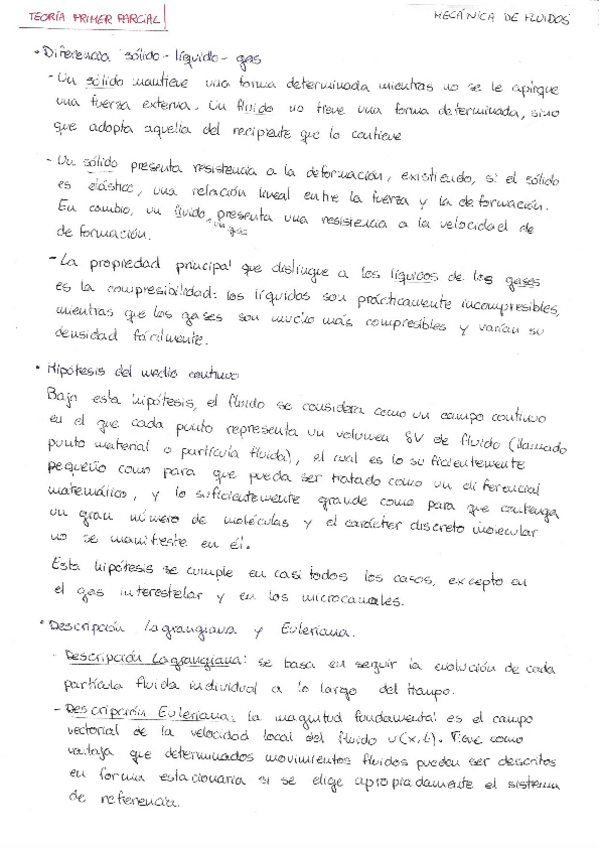 TEORÍA PRIMER PARCIAL
MECÁNICA DE FLUIDOS
• Diferencia sólido - líquido - gas
- Un sólido mantiene una forma determinada mientras no se le aplique
una fuerza externa. Un fluido no tiene una forma determinada, sino
que adopta aquella del recipiente que lo contiene
- Un sólido presenta resistencia a la deformación, existiendo, si el sólido
es elástico, una relación lineal entre la fuerza y la deformación.
En cambio, un fluido presenta una resistencia a la velocidad de
deformación.
- La propiedad principal que distingue a los líquidos de los gases
es la compresibilidad: los líquidos son prácticamente incompresibles,
mientras que los gases son mucho más compresibles y varían su
densidad fácilmente.
• Hipótesis del medio continuo
Bajo esta hipótesis, el fluido se considera como un campo continuo
en el que cada punto representa un volumen δV de fluido (llamado
punto material o partícula fluida), el cual es lo suficientemente
pequeño como para que pueda ser tratado como un diferencial
matemático, y lo suficientemente grande como para que contenga
un gran número de moléculas y el carácter discreto molecular
no se manifieste en él.
Esta hipótesis se cumple en casi todos los casos, excepto en
el gas interestelar y en los microcanales.
• Descripción Lagrangiana y Euleriana.
- Descripción Lagrangiana: se basa en seguir la evolución de cada
partícula fluida individual a lo largo del tiempo.
- Descripción Euleriana: la magnitud fundamental es el campo
vectorial de la velocidad local del fluido v(x,t). Tiene como
ventaja que determinados movimientos fluidos puedan ser descritos
en forma estacionaria si se elige apropiadamente el sistema
de referencia.